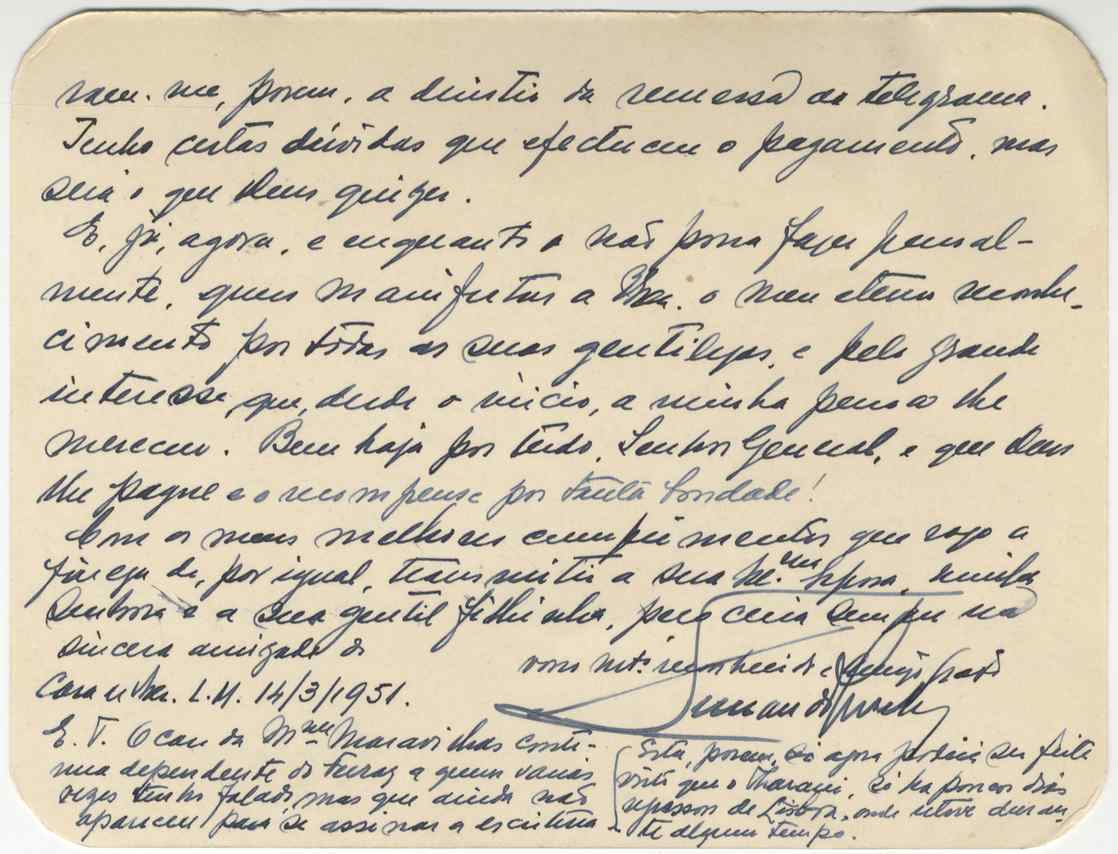 ram-me, porem, a dirista da remessa do telegrama.
Tenho certas dúvidas que efectuem o pagamento, mas
será o que Deus quizer.
E, já, agora, e enquanto o não possa fazer pessoal-
mente, quero manifestar a V. Exa. o meu eterno reconhe-
cimento por todas as suas gentilezas, e pelo grande
interesse que, desde o início, a minha pensão lhe
mereceu. Bem haja por tudo, Senhor General, e que Deus
lhe pague e o recompense por tanta bondade!
Com os meus melhores cumprimentos que rogo a
fineza de, por igual, transmitir a sua Exma. Esposa, minha
Senhora e a sua gentil filhinha, peço creia sempre na
sincera amizade do
vosso mto. reconhecido e amigo grato
Casa de V. Exa. L.M. 14/3/1951.
E. T. O caso da Mme Maravilhas conti-
nua dependente do Ferraz a quem varias
vezes tenho falado, mas que ainda não
apareceu para se assinar a escritura.
Esta, porem, só agora poderia ser feita
visto que o só ha poucos dias
regressou de Lisboa, onde esteve duran-
te algum tempo.